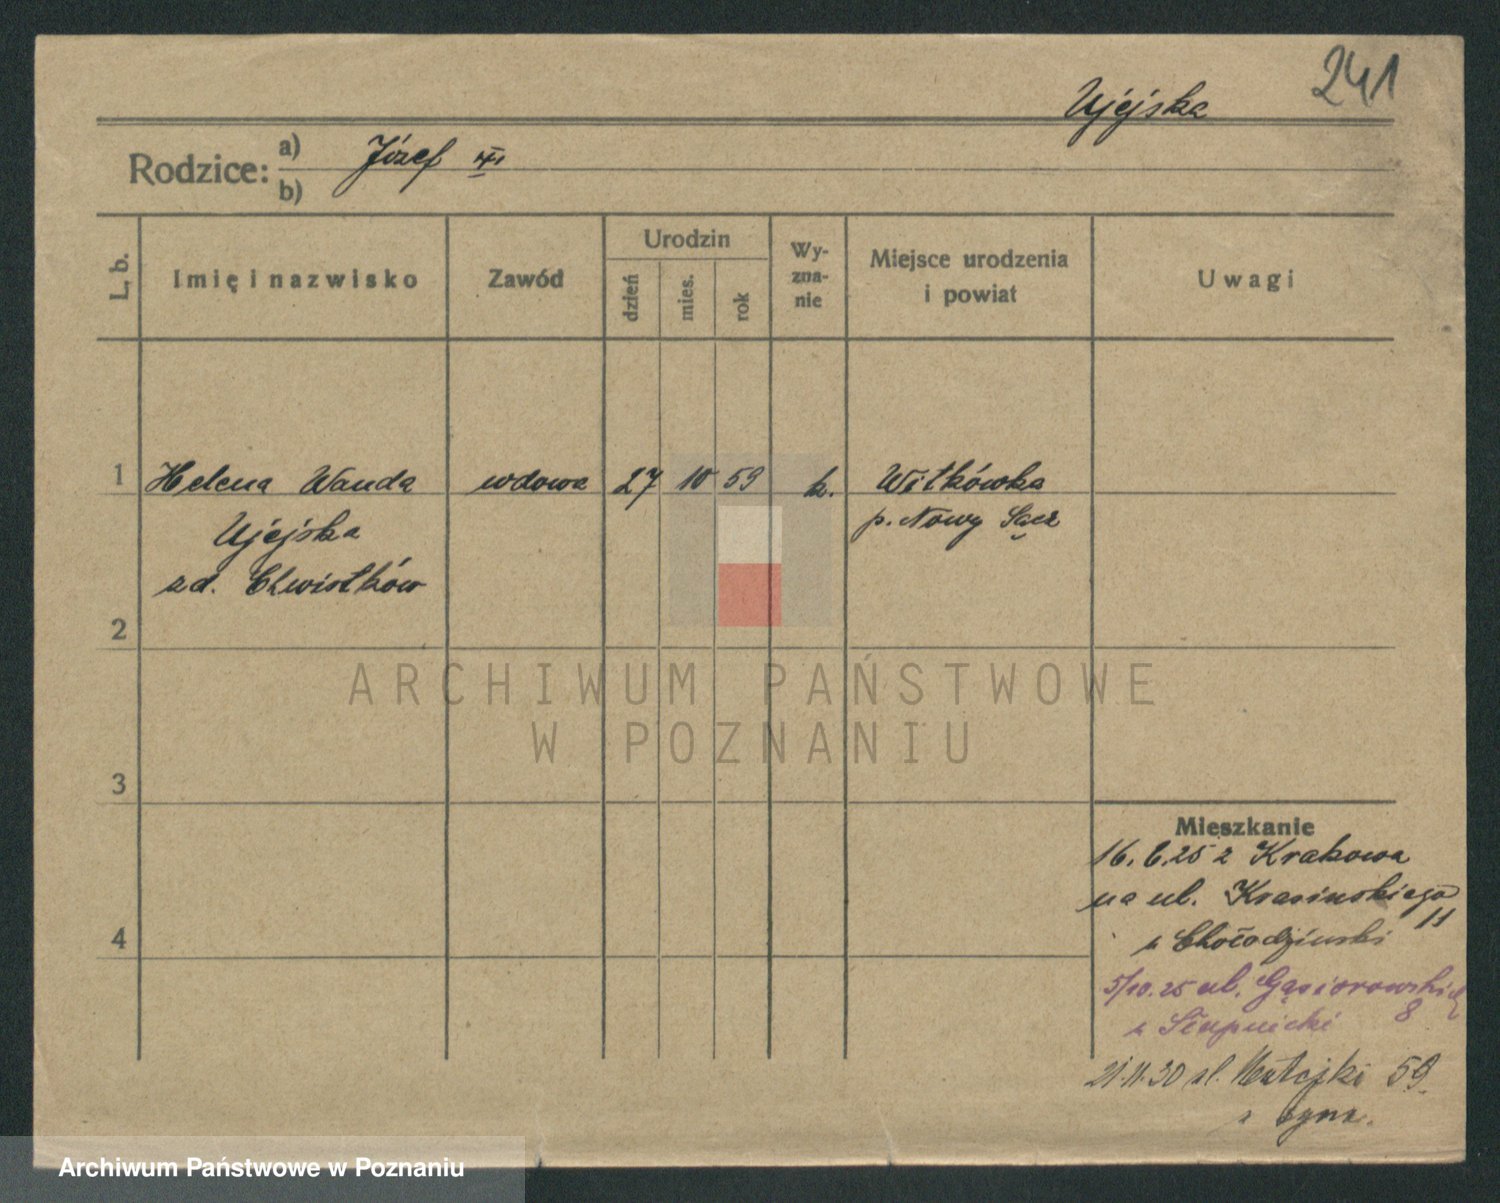 241
Ujejska
Rodzice: a) Józef
b)
L. b. Imię i nazwisko Zawód Urodzin dzień mies. rok Wy-zna-nie Miejsce urodzenia i powiat Uwagi
1 Helena Wanda wdowa 27 10 59 k. Witkówka
Ujejska p. Nowy Sącz
zd. Chwistków
2
ARCHIWUM PAŃSTWOWE
W POZNANIU
3
Mieszkanie
16.6.25 z Krakowa
na ul. Krasińskiego
11
4
u Chołodziński
5/10.25 ul. Gąsiorowskich
8
u Słupnicki
21.11.30 ul. Matejki 59.
Archiwum Państwowe w Poznaniu